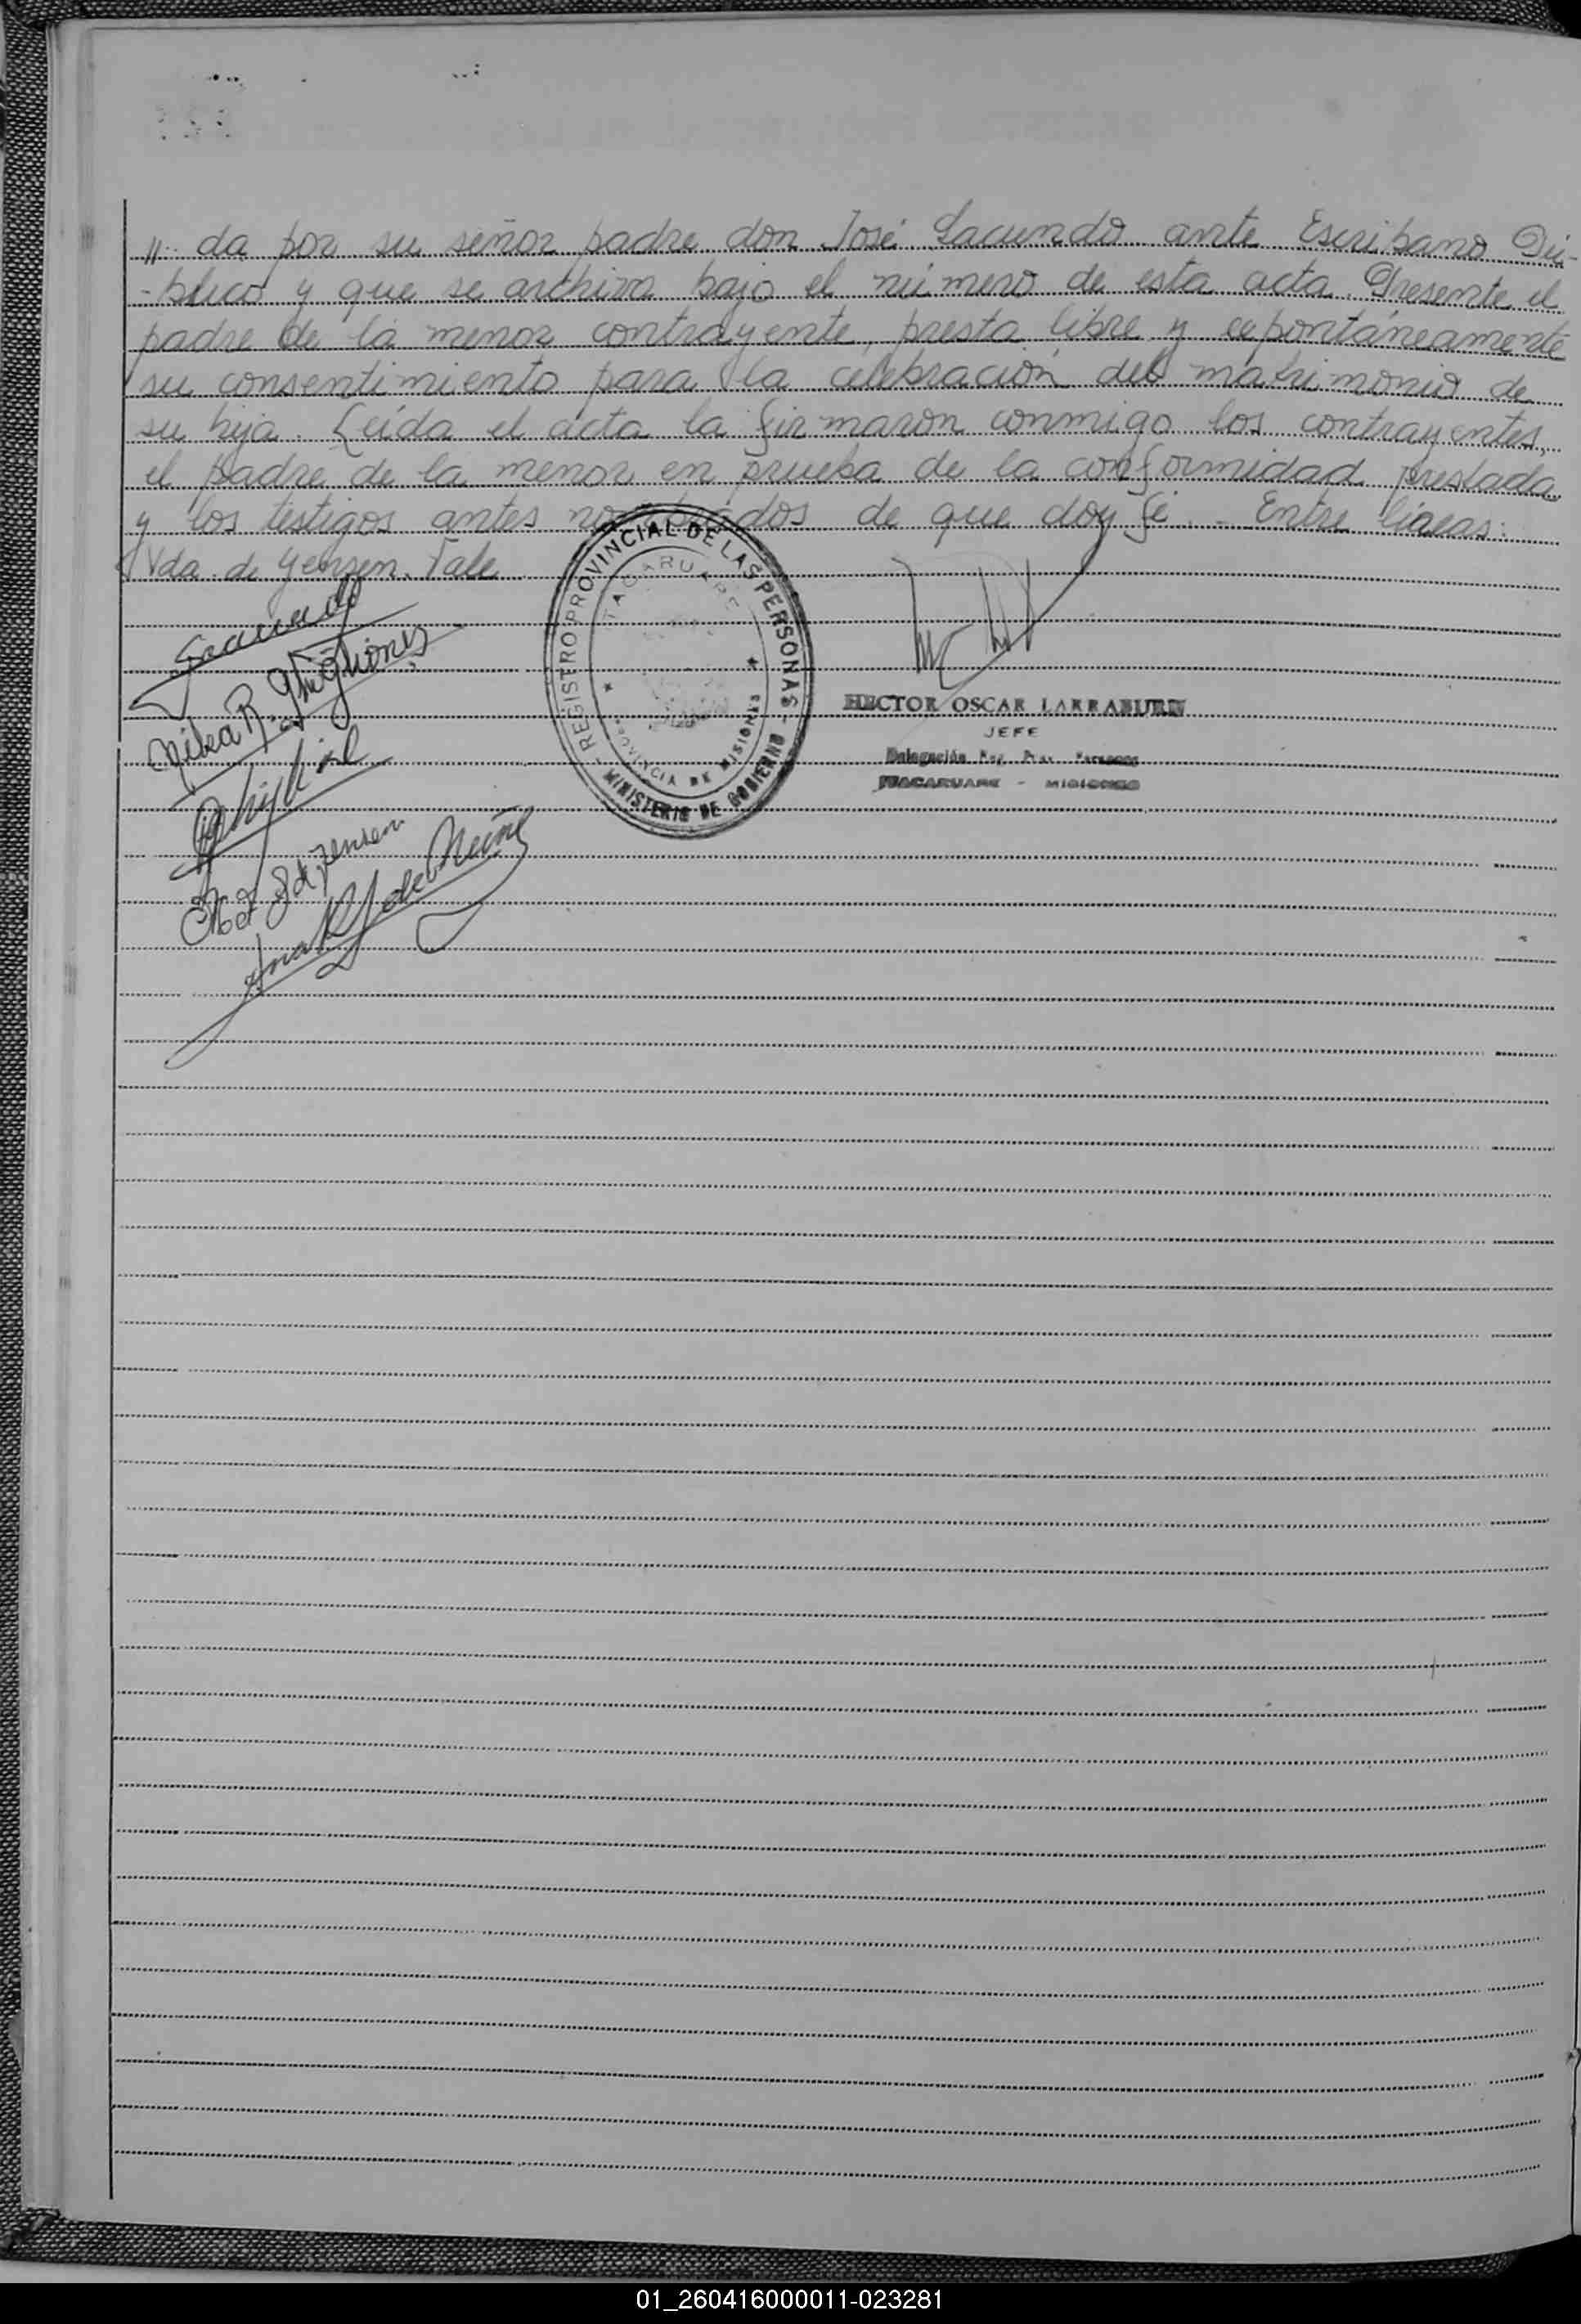 //. da por su señor padre don José Sacundo ante Escribano Pú-
-blico y que se archiva bajo el número de esta acta. Presente el
padre de la menor contrayente, presta libre y espontáneamente
su consentimiento para la celebración del matrimonio de
su hija. Leída el acta la firmaron conmigo los contrayentes,
el padre de la menor en prueba de la conformidad prestada
y los testigos antes nombrados de que doy fé. - Entre líneas:
Vda. de Yensen. Vale
REGISTRO PROVINCIAL DE LAS PERSONAS
ITACARUARE
PROVINCIA DE MISIONES
MINISTERIO DE GOBIERNO
HECTOR OSCAR LARRABURU
JEFE
Delegación Reg. Prov. Personas
ITACARUARE - MISIONES
Sacundo
R. Ghiglione
de Jensen
Ana de Nuñe
01_260416000011-023281